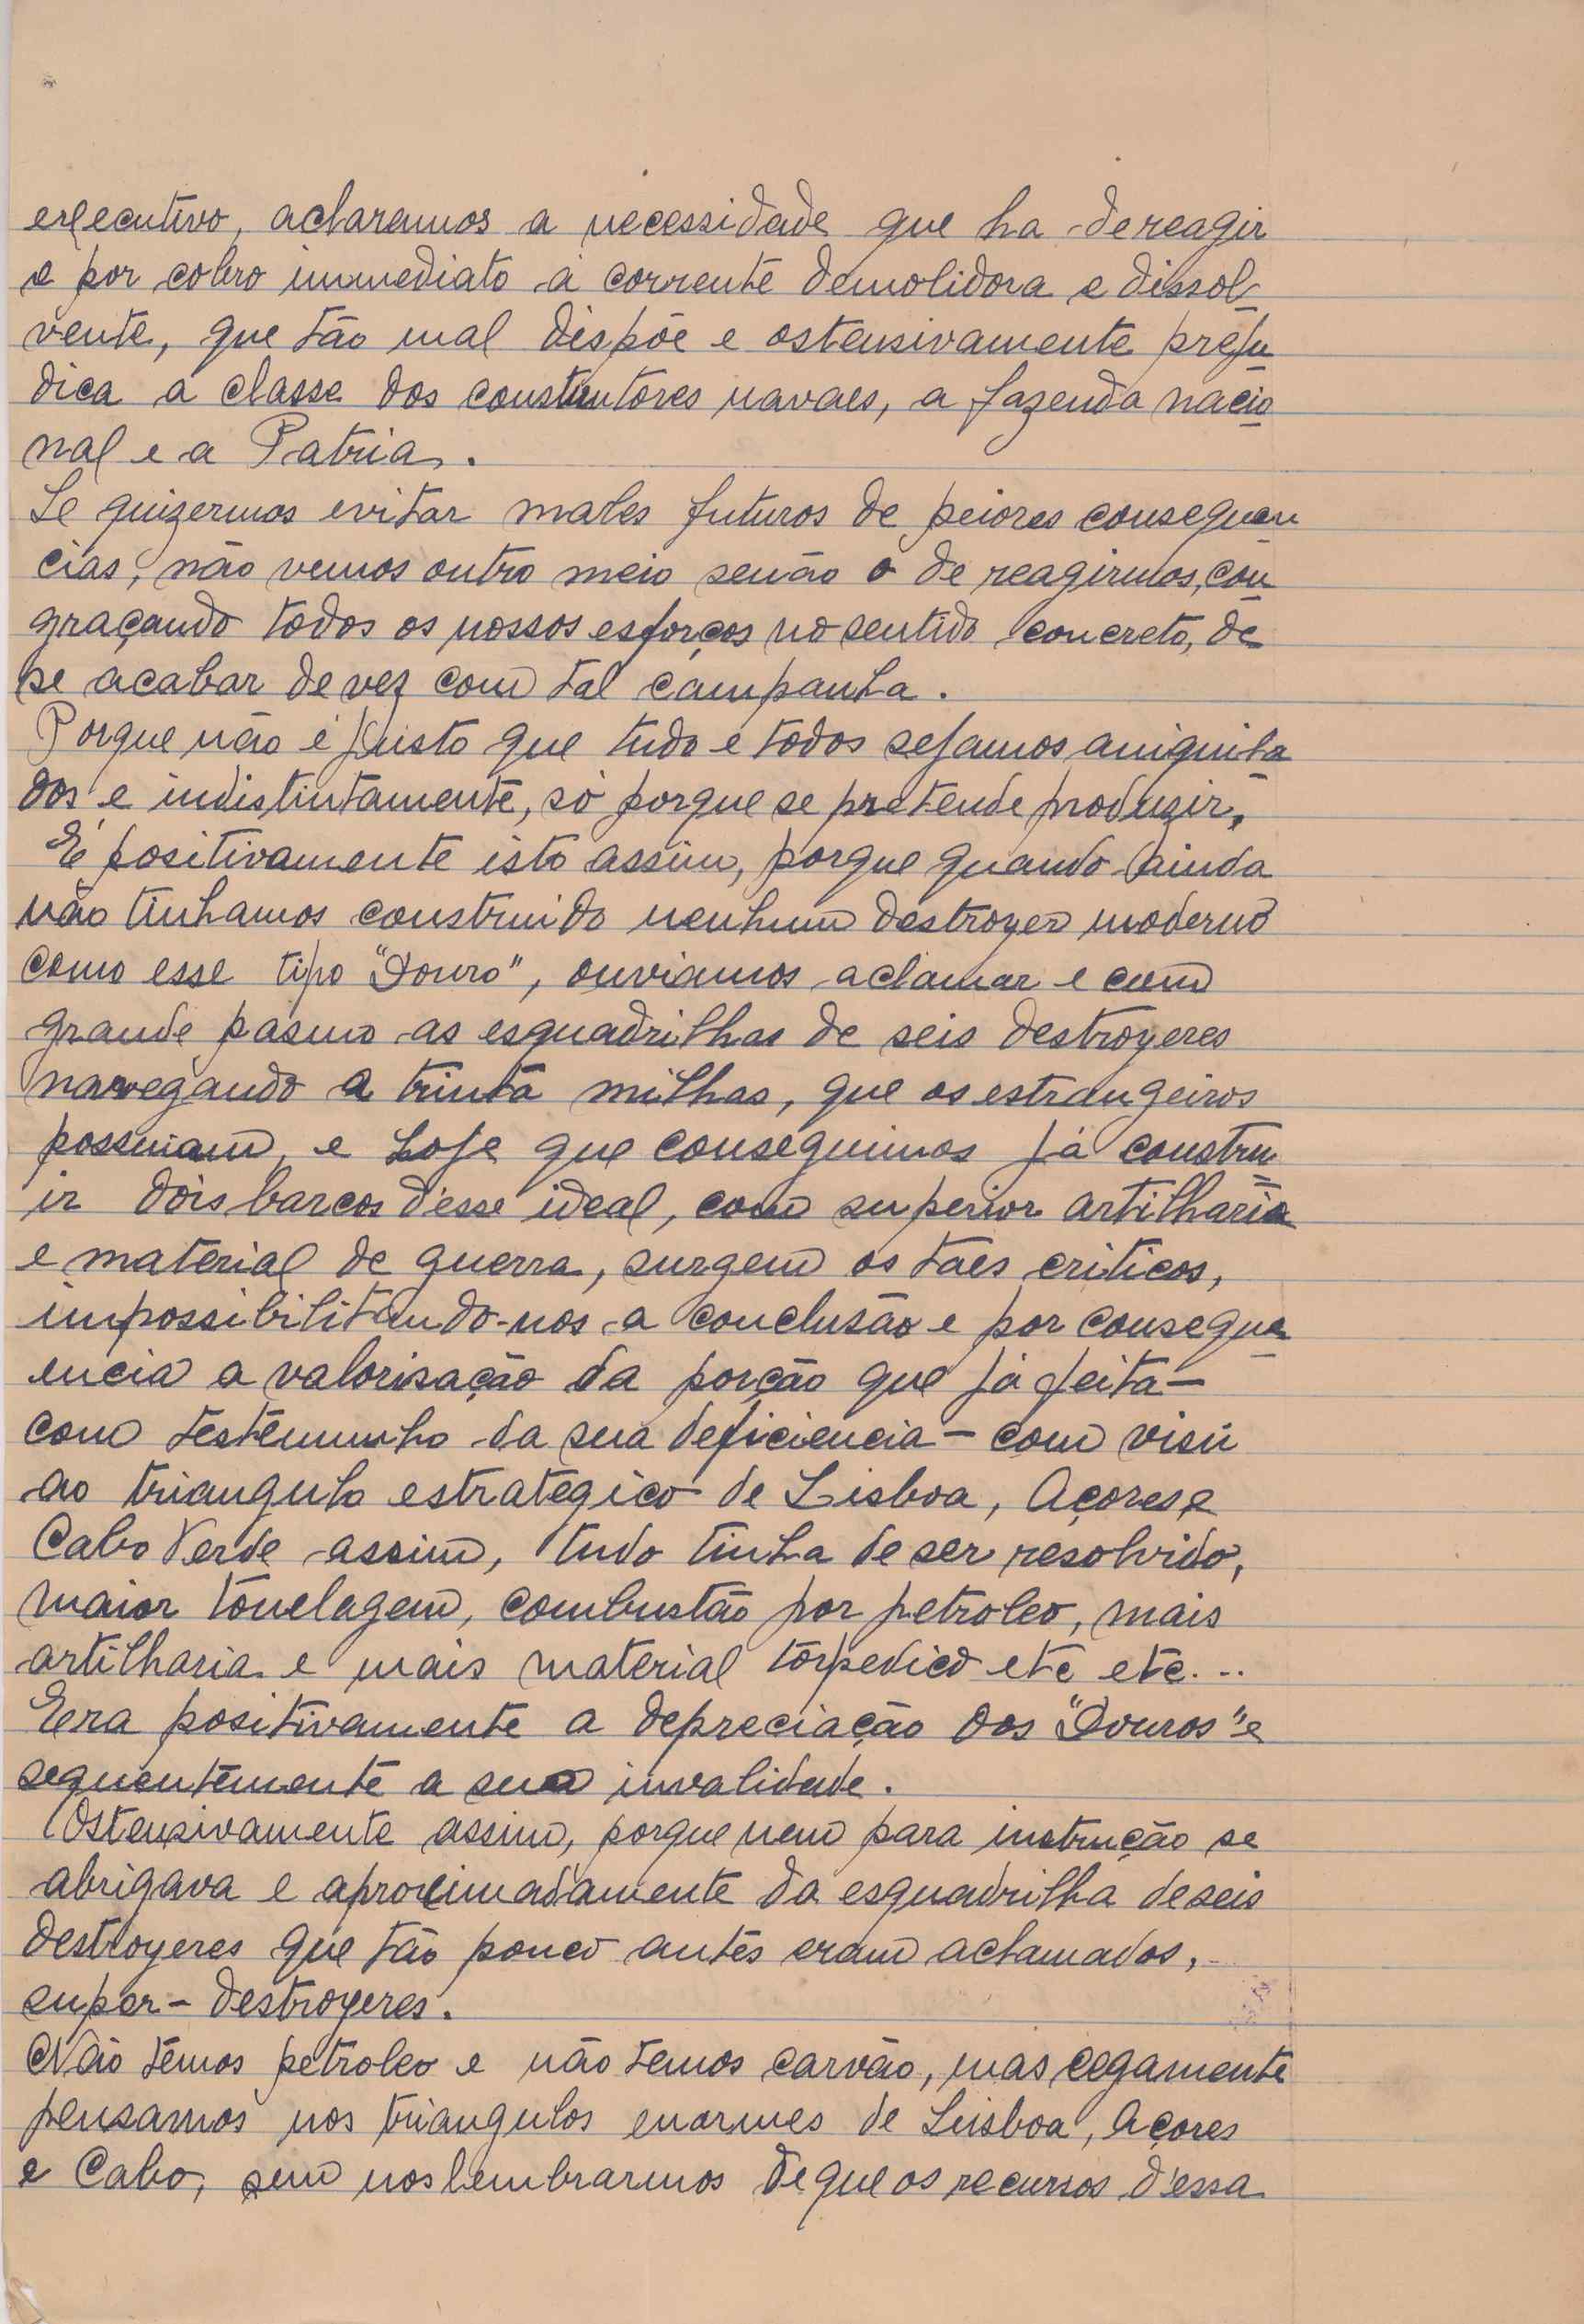 executivo, aclaremos a necessidade que ha de reagir
e por cobro immediato á corrente demolidora e dissol-
vente, que tão mal dispõe e ostensivamente preju
dica a classe dos construtores navaes, a fazenda nacio
nal e a Patria.
Se quizermos evitar males futuros de peiores consequen
cias, não vemos outro meio senão o de reagirmos, con
graçando todos os nossos esforços no sentido concreto, de
se acabar de vez com tal campanha.
Porque não é justo que tudo e todos sejamos aniquila
dos e indistintamente, só porque se pretende produzir.
É positivamente isto assim, porque quando ainda
não tinhamos construido nenhum destroyer moderno
como esse tipo "Douro", ouviamos aclamar e com
grande pasmo as esquadrilhas de seis destroyeres
navegando a trinta milhas, que os estrangeiros
possuiam, e hoje que conseguimos já constru
ir dois barcos d'esse ideal, com superior artilharia
e material de guerra, surgem os taes criticos,
impossibilitando-nos a conclusão e por conseque
encia a valorisação da porção que já feita-
com testemunho da sua deficiencia - com visu
ao triangulo estratégico de Lisboa, Açores e
Cabo Verde assim, tudo tinha de ser resolvido,
maior tonelagem, combustão por petroleo, mais
artilharia e mais material torpedico etc etc...
Era positivamente a depreciação dos "Douros" e
sequentemente a sua invalidade.
Ostensivamente assim, porque nem para instrução se
abrigava e aproximadamente da esquadrilha de seis
destroyeres que tão pouco antes eram aclamados,
super-destroyeres.
Não temos petroleo e não temos carvão, mas cegamente
pensamos nos triangulos enormes de Lisboa, Açores
e Cabo, sem nos lembrarmos de que os recursos d'essa